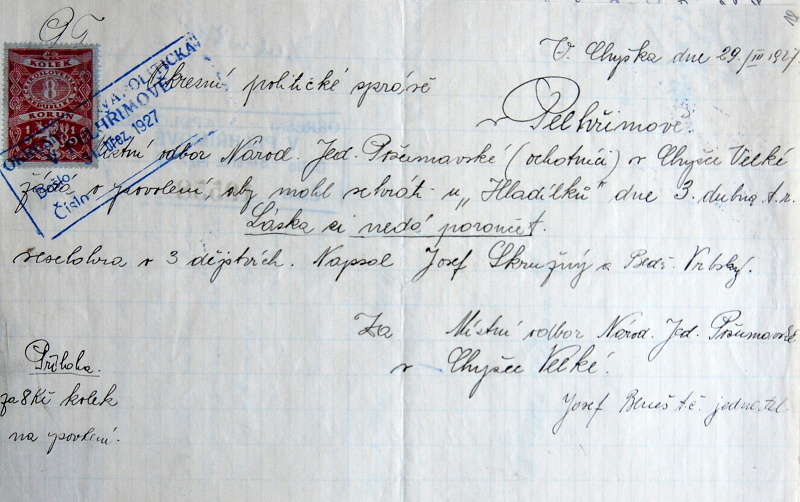 V. Chyška dne 29./III 1927.
Okresní politické správě
v Pelhřimově.
Místní odbor Národ. Jed. Pošumavské (ochotníci) v Chyšce Velké
žádá o povolení, aby mohl sehráti u „Hladílků" dne 3. dubna t.r.
Láska si nedá poroučet.
veselohra v 3 dějstvích. Napsal Josef Skružný a Bedř. Vrbský.
Za Místní odbor Národ. Jed. Pošumavské
v Chyšce Velké.
Josef Beneš t.č. jednatel.
Příloha.
za 8 Kč kolek
na povolení.
KOLEK
8
KORUN
POLITICKÁ
PELHŘIMOVĚ
březen 1927
Došlo
Číslo